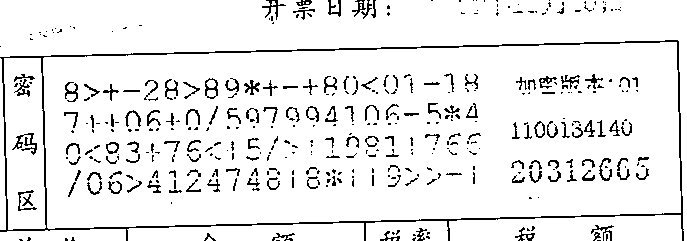 开票日期:
密码区
8>+-28>89*+-+80<01-18
7++06+0/597994106-5*4
0<83+76<15/>119811766
/06>412474818*119>>-1
加密版本:01
1100134140
20312665
金 额
税率
税 额